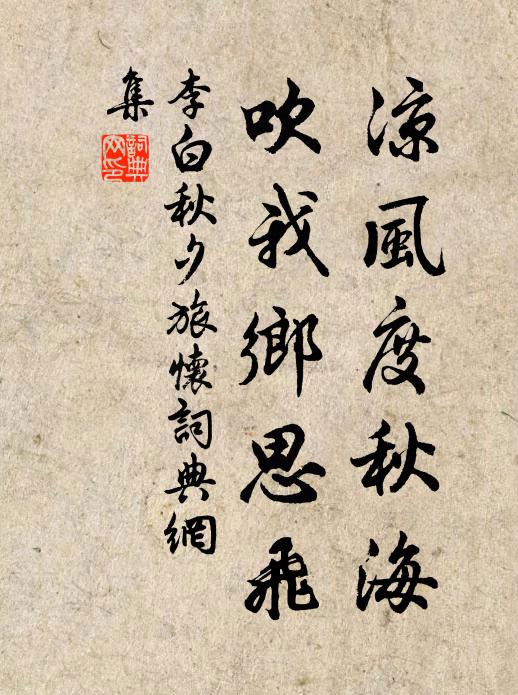 凉風度秋海
吹我鄉思飛
李白秋夕旅懷詞典網
集
詞典
网印